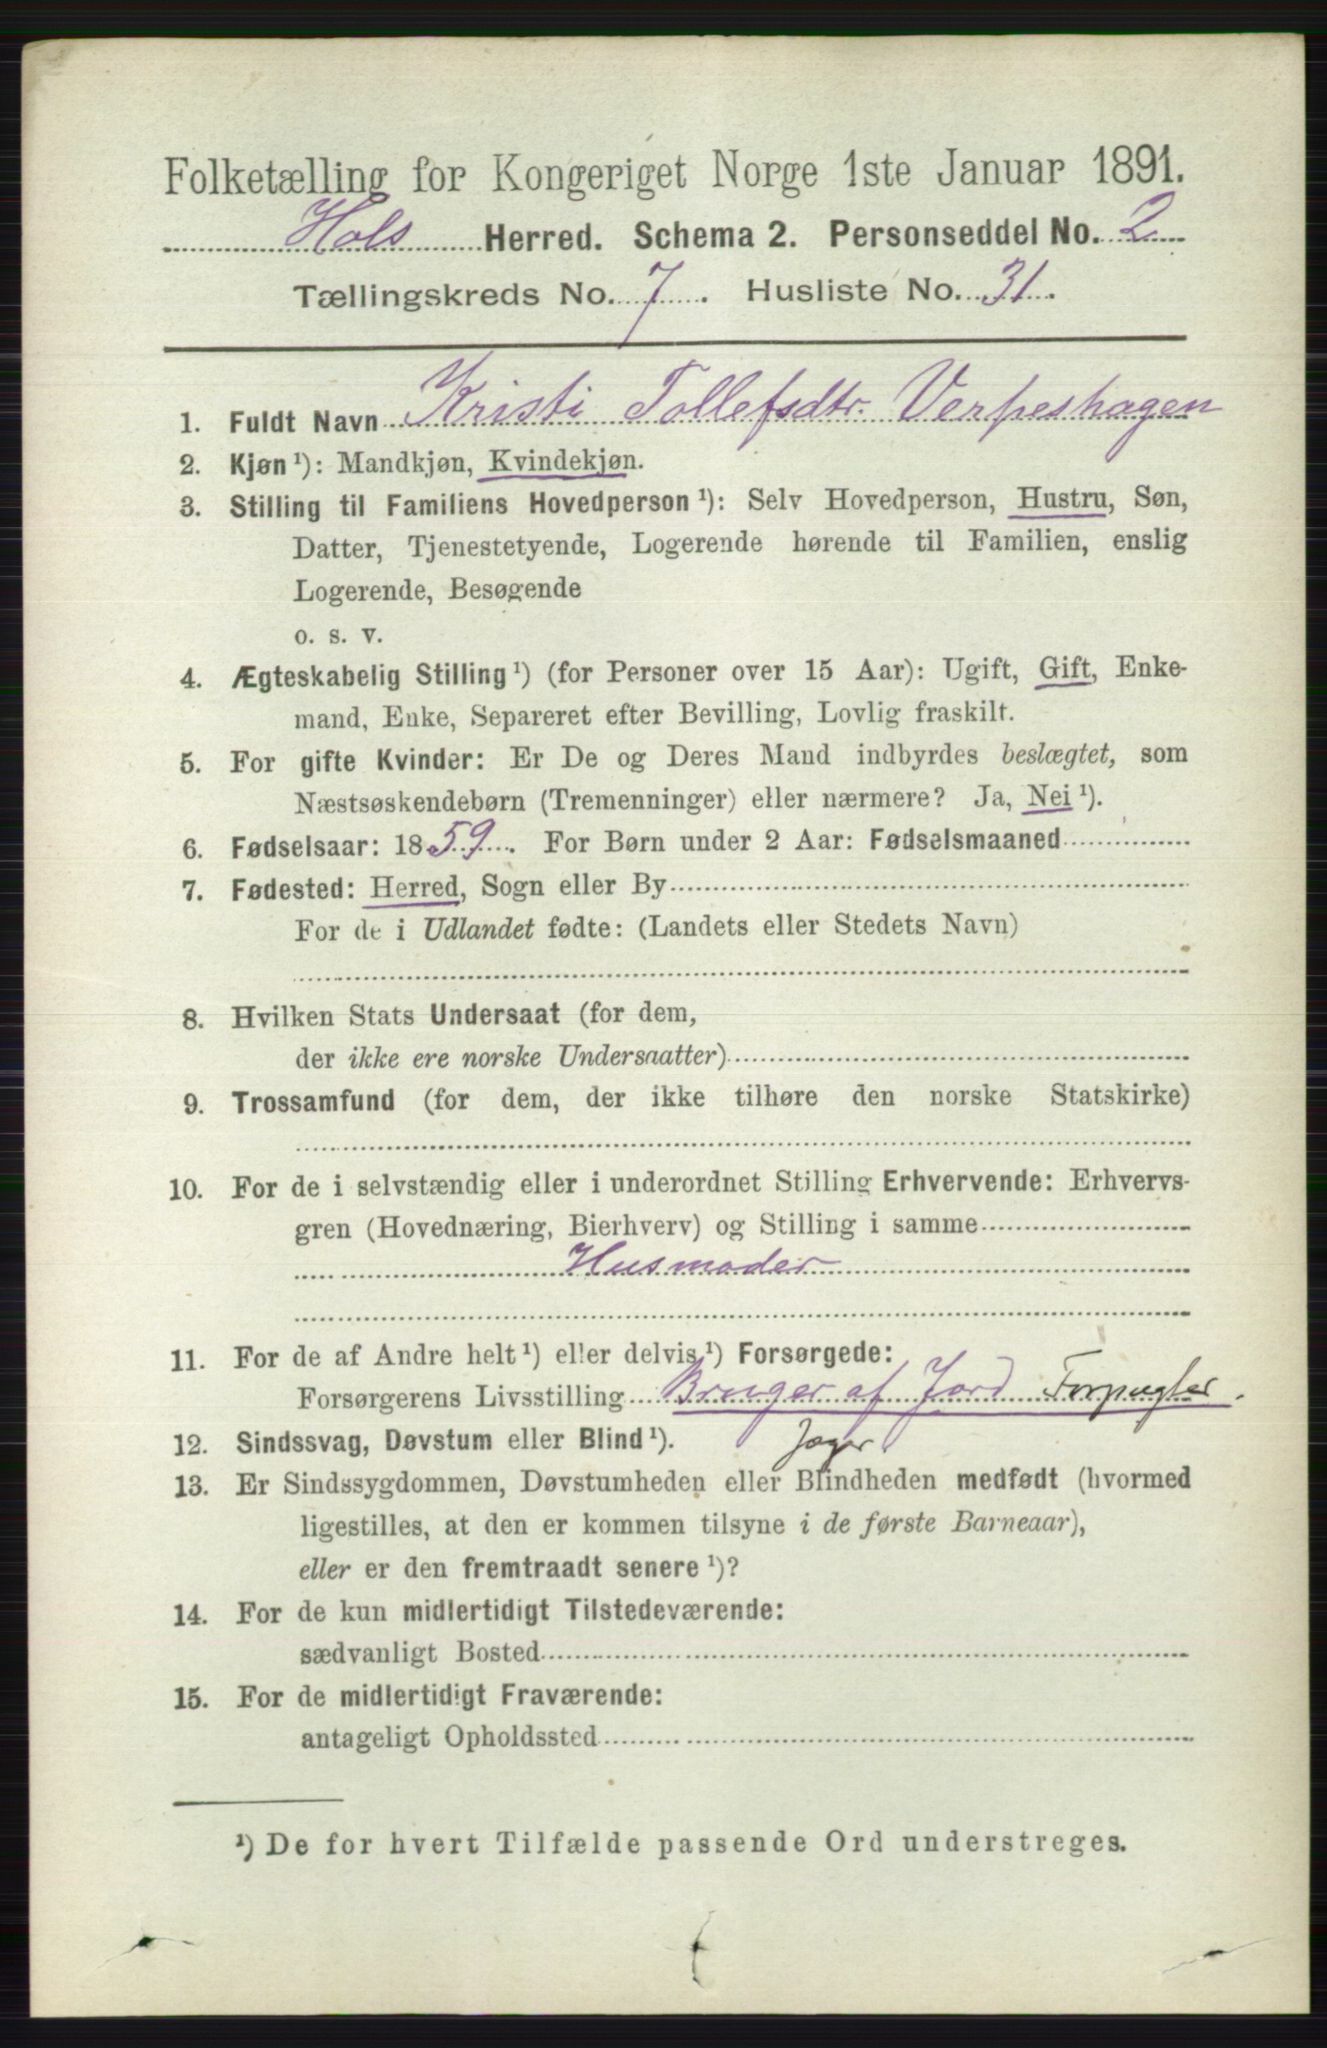 Folketælling for Kongeriget Norge 1ste Januar 1891.
Hols Herred. Schema 2. Personseddel No. 2
Tællingskreds No. 7. Husliste No. 31.
1. Fuldt Navn Kristi Tollefsdtr. Verpeshagen
2. Kjøn ¹): Mandkjøn, Kvindekjøn.
3. Stilling til Familiens Hovedperson ¹): Selv Hovedperson, Hustru, Søn,
Datter, Tjenestetyende, Logerende hørende til Familien, enslig
Logerende, Besøgende
o. s. v.
4. Ægteskabelig Stilling ¹) (for Personer over 15 Aar): Ugift, Gift, Enke-
mand, Enke, Separeret efter Bevilling, Lovlig fraskilt.
5. For gifte Kvinder: Er De og Deres Mand indbyrdes beslægtet, som
Næstsøskendebørn (Tremenninger) eller nærmere? Ja, Nei ¹).
6. Fødselsaar: 1859. For Børn under 2 Aar: Fødselsmaaned
7. Fødested: Herred, Sogn eller By
For de i Udlandet fødte: (Landets eller Stedets Navn)
8. Hvilken Stats Undersaat (for dem,
der ikke ere norske Undersaatter)
9. Trossamfund (for dem, der ikke tilhøre den norske Statskirke)
10. For de i selvstændig eller i underordnet Stilling Erhvervende: Erhvervs-
gren (Hovednæring, Bierhverv) og Stilling i samme
Husmoder
11. For de af Andre helt ¹) eller delvis ¹) Forsørgede:
Forsørgerens Livsstilling Bruger af Jord
12. Sindssvag, Døvstum eller Blind ¹). Jæger
13. Er Sindssygdommen, Døvstumheden eller Blindheden medfødt (hvormed
ligestilles, at den er kommen tilsyne i de første Barneaar),
eller er den fremtraadt senere ¹)?
14. For de kun midlertidigt Tilstedeværende:
sædvanligt Bosted
15. For de midlertidigt Fraværende:
antageligt Opholdssted
¹) De for hvert Tilfælde passende Ord understreges.